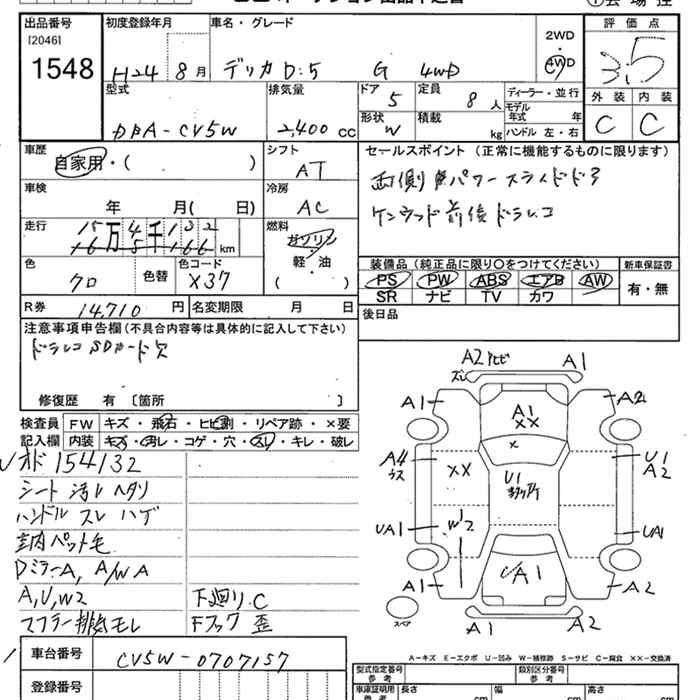 出品番号 初度登録年月 車名・グレード 評価点
[2046]
1548
H24 8月 デリカD:5 G 4WD
2WD
・
4WD
3.5
外装 内装
C C
型式 排気量 ドア 定員 ディーラー・並行
DBA-CV5W 2,400 cc 5 8人
モデル年式 年
形状 積載
W kg ハンドル 左・右
車歴 シフト
自家用・( ) AT
車検 冷房
年 月( 日) AC
走行 燃料
15万4千132
16 5 166 km
ガソリン
軽・油
( )
色 色替 色コード
クロ X37
R券 14,710円 名変期限 月 日
セールスポイント(正常に機能するものに限ります)
両側パワースライドドア
ケンウッド前後ドラレコ
装備品(純正品に限り○をつけてください) 新車保証書
PS PW ABS エアB AW 有・無
SR ナビ TV カワ
後日品
注意事項申告欄(不具合内容等は具体的に記入して下さい)
ドラレコSDカード欠
修復歴 有〔箇所 〕
検査員記入欄
FW キズ・飛石・ヒビ割・リペア跡・×要
内装 キズ・汚レ・コゲ・穴・スレ・キレ・破レ
オド154132
シート汚レ ヘタリ
ハンドル スレ ハゲ
室内ペット毛
DミラーA, A/W A
A,U,W2 下廻リ.C
マフラー排気モレ Fフック歪
A2 A1
スレ
A1 A1 A2
×× ×
A4 U1
A2
×× U1
UA1 W2 UA1
A1 UA1 A2
スペア A1 A2
A-キズ E-エクボ U-凹み W-補修跡 S-サビ C-腐食 ××-交換済
車台番号 CV5W-0707157
登録番号
型式指定番号 参考 類別区分番号 参考
車庫証明用 参考 長さ cm 幅 cm 高さ cm